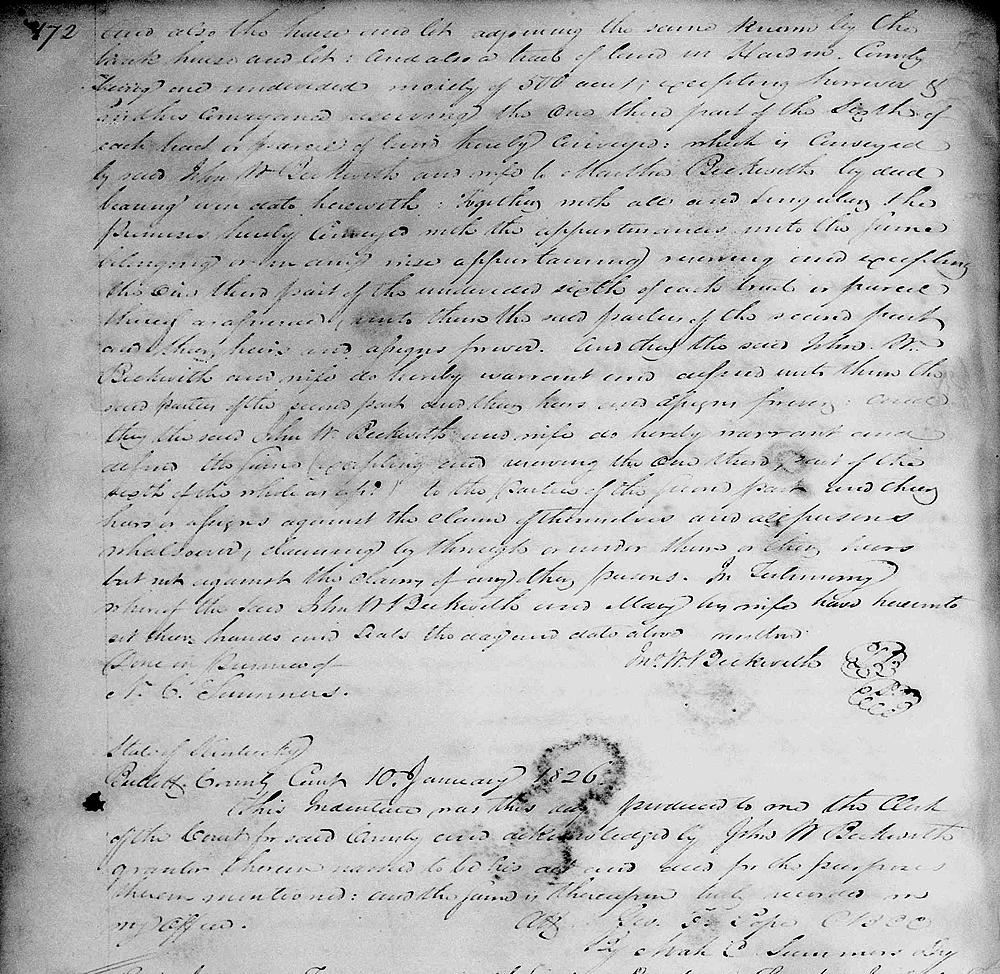 172
and also the house and lot adjoining the same known by the
brick house and lot: And also a tract of land in Hardin County
being one undivided moiety of 500 acres; excepting however &
in this Conveyance reserving the one third part of the Sixth of
each tract or parcel of land hereby Conveyed: which is Conveyed
by said John W Beckwith and wife to Martha Beckwith by deed
bearing even date herewith: Together with all and Singular the
premises hereby Conveyed with the appurtenances unto the same
belonging or in any wise appertaining reserving and excepting
the One third part of the undivided sixth of each tract or parcel
thereof as aforesaid, unto them the said parties of the second part
and their heirs and assigns forever. And they the said John W.
Beckwith and wife do hereby warrant and defend unto them the
said parties of the second part and their heirs and assigns forever:
they the said John W. Beckwith and wife do hereby warrant and
defend the same (excepting and reserving the one third part of the
sixth of the whole as afsd) to the parties of the second part and their
heirs or assigns against the claim of themselves and all persons
whatsoever, claiming by through or under them or their heirs
but not against the claim of any other persons. In Testimony
whereof the said John W Beckwith and Mary his wife have hereunto
set their hands and Seals the day and date above written
Done in Presence of Jno. W Beckwith
N. C. Summers.
State of Kentucky
Bullitt County Court 10th January 1826
This Indenture was this day produced to me the Clerk
of the Court for said County and acknowledged by John W Beckwith
grantor therein named to be his act and deed for the purposes
therein mentioned: and the same is thereupon duly recorded in
my Office. Att Pope CBCC
By Noah C Summers Dy